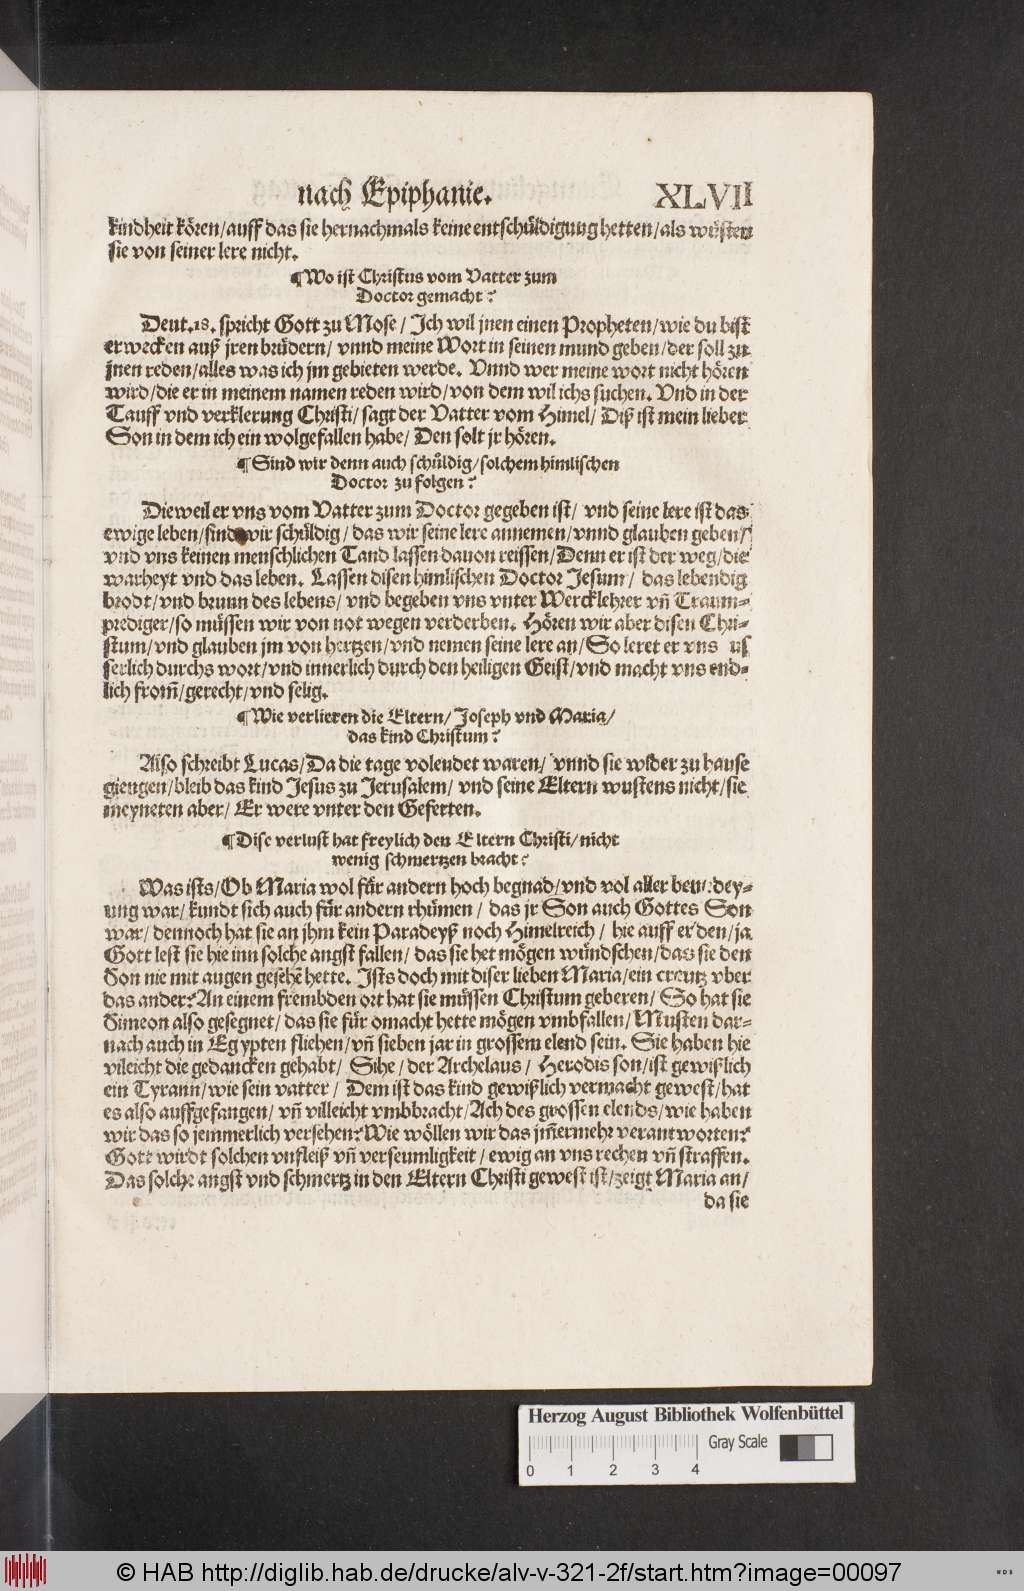 nach Epiphanie. XLVII
kindheit kören/auff das sie hernachmals keine entschůldigung hetten/als wůsten
sie von seiner lere nicht.
¶Wo ist Christus vom Vatter zum
Doctor gemacht?
Deut.18. spricht Gott zu Mose/ Jch wil jnen einen Propheten/wie du bist
erwecken auß jren brůdern/ vnnd meine Wort in seinen mund geben/der soll zu
jnen reden/alles was ich jm gebieten werde. Vnnd wer meine wort nicht hören
wird/die er in meinem namen reden wird/von dem wil ichs suchen. Vnd in der
Tauff vnd verklerung Christi/ sagt der Vatter vom Himel/ Diß ist mein lieber
Son in dem ich ein wolgefallen habe/ Den solt jr hören.
¶Sind wir denn auch schůldig/solchem himlischen
Doctor zu folgen?
Dieweil er vns vom Vatter zum Doctor gegeben ist/ vnd seine lere ist das
ewige leben/sind wir schůldig/ das wir seine lere annemen/vnnd glauben geben/
vnd vns keinen menschlichen Tand lassen dauon reissen/Denn er ist der weg/die
warheyt vnd das leben. Lassen disen himlischen Doctor Jesum/ das lebendig
brodt/vnd brunn des lebens/ vnd begeben vns vnter Wercklehrer vñ Traum-
prediger/so můssen wir von not wegen verderben. Hören wir aber disen Chri-
stum/vnd glauben jm von hertzen/vnd nemen seine lere an/So leret er vns us
serlich durchs wort/vnd innerlich durch den heiligen Geist/vnd macht vns end-
lich from̃/gerecht/vnd selig.
¶Wie verlieren die Eltern/Joseph vnd Maria/
das kind Christum?
Also schreibt Lucas/Da die tage volendet waren/ vnnd sie wider zu hause
giengen/bleib das kind Jesus zu Jerusalem/ vnd seine Eltern wustens nicht/sie
meyneten aber/ Er were vnter den Geferten.
¶Dise verlust hat freylich den Eltern Christi/nicht
wenig schmertzen bracht?
Was ists/Ob Maria wol fůr andern hoch begnad/vnd vol aller benedey-
ung war/ kundt sich auch fůr andern rhůmen/ das jr Son auch Gottes Son
war/ dennoch hat sie an jhm kein Paradeyß noch Himelreich/ hie auff erden/ja
Gott lest sie hie inn solche angst fallen/ das sie het mögen wůndschen/das sie den
Son nie mit augen gesehē hette. Jsts doch mit diser lieben Maria/ein creutz vber
das ander?An einem frembden ort hat sie můssen Christum geberen/ So hat sie
Simeon also gesegnet/das sie fůr omacht hette mögen vmbfallen/Musten dar-
nach auch in Egypten fliehen/vñ sieben jar in grossem elend sein. Sie haben hie
vileicht die gedancken gehabt/ Sihe/der Archelaus/ Herodis son/ist gewißlich
ein Tyrann/wie sein vatter/ Dem ist das kind gewißlich vermacht gewest/hat
es also auffgefangen/ vñ villeicht vmbbracht/Ach des grossen elends/wie haben
wir das so jemmerlich versehen?Wie wöllen wir das jm̃ermehr verantworten?
Gott wirdt solchen vnfleiß vñ verseumligkeit/ewig an vns rechen vñ straffen.
Das solche angst vnd schmertz in den Eltern Christi gewest ist/zeigt Maria an/
da sie
Herzog August Bibliothek Wolfenbüttel
Gray Scale
0 1 2 3 4
© HAB http://diglib.hab.de/drucke/alv-v-321-2f/start.htm?image=00097